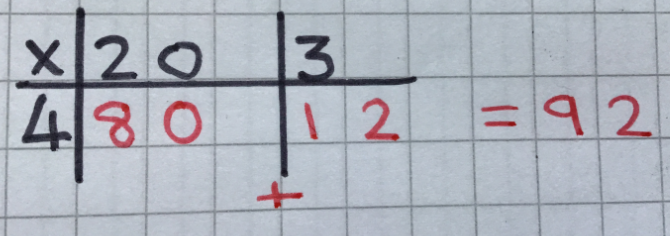 x 20 3
4 80 12 = 92
+